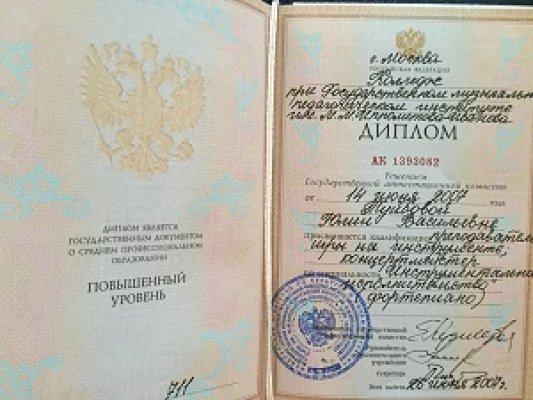 ДИПЛОМ ЯВЛЯЕТСЯ
ГОСУДАРСТВЕННЫМ ДОКУМЕНТОМ
О СРЕДНЕМ ПРОФЕССИОНАЛЬНОМ
ОБРАЗОВАНИИ
ПОВЫШЕННЫЙ
УРОВЕНЬ
711
г. Москва
РОССИЙСКАЯ ФЕДЕРАЦИЯ
Колледж
при Государственном музыкально
педагогическом институте
им. М.М. Ипполитова-Иванова
ДИПЛОМ
АК 1393082
Решением
Государственной аттестационной комиссии
от 14 июня 2007 года
Юлии Васильевне
присвоена квалификация преподаватель
игры на инструменте,
концертмейстер
по специальности "Инструментальное
исполнительство"
фортепиано)
Государственной
комиссии
Руководитель
образовательного
учреждения
Секретарь
июня 2007г.